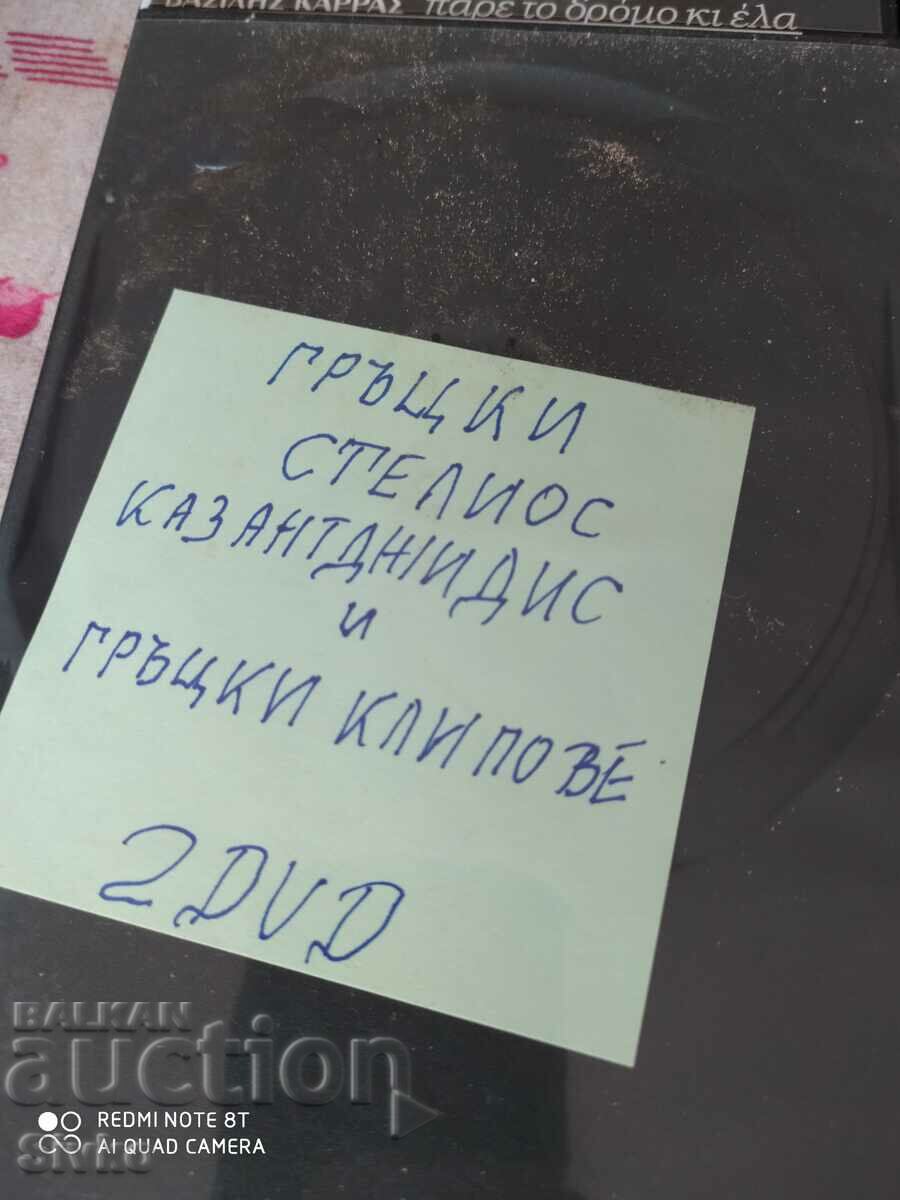 ΒΑΣΙΛΗΣ ΚΑΡΡΑΣ πάρε το δρόμο κι έλα
ГРЪЦКИ
СТЕЛИОС
КАЗАНТДЖИДИС
И
ГРЪЦКИ КЛИПОВЕ
2 DVD
BALKAN
auction
REDMI NOTE 8T
AI QUAD CAMERA
Sivko